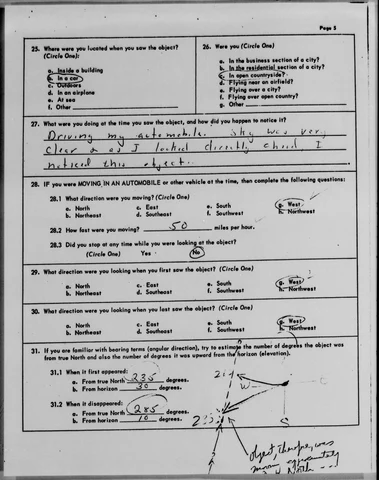 Page 5
25. Where were you located when you saw the object?
(Circle One):
a. Inside a building
b. In a car
c. Outdoors
d. In an airplane
e. At sea
f. Other
26. Were you (Circle One)
a. In the business section of a city?
b. In the residential section of a city?
c. In open countryside?
d. Flying near an airfield?
e. Flying over a city?
f. Flying over open country?
g. Other
27. What were you doing at the time you saw the object, and how did you happen to notice it?
Driving my automobile. Sky was very
clear & as I looked directly ahead I
noticed this object.
28. IF you were MOVING IN AN AUTOMOBILE or other vehicle at the time, then complete the following questions:
28.1 What direction were you moving? (Circle One)
a. North c. East e. South g. West
b. Northeast d. Southeast f. Southwest h. Northwest
28.2 How fast were you moving? 50 miles per hour.
28.3 Did you stop at any time while you were looking at the object?
(Circle One) Yes No
29. What direction were you looking when you first saw the object? (Circle One)
a. North c. East e. South g. West
b. Northeast d. Southeast f. Southwest h. Northwest
30. What direction were you looking when you last saw the object? (Circle One)
a. North c. East e. South g. West
b. Northeast d. Southeast f. Southwest h. Northwest
31. If you are familiar with bearing terms (angular direction), try to estimate the number of degrees the object was
from true North and also the number of degrees it was upward from the horizon (elevation).
31.1 When it first appeared:
a. From true North 235 degrees.
b. From horizon 30 degrees.
31.2 When it disappeared:
a. From true North 285 degrees.
b. From horizon 10 degrees.
W
S
object, therefore, was
moving approximately
North